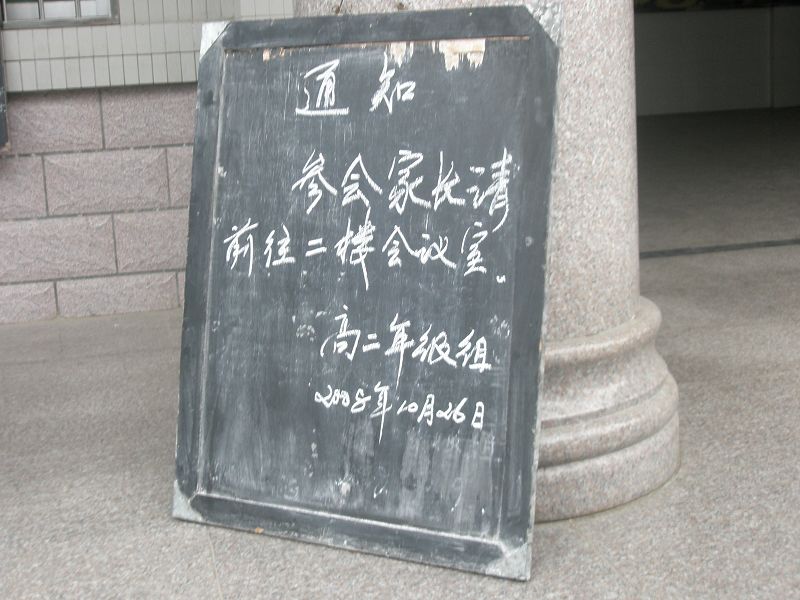 通知
参会家长请
前往二楼会议室。
高二年级组
2008年10月26日